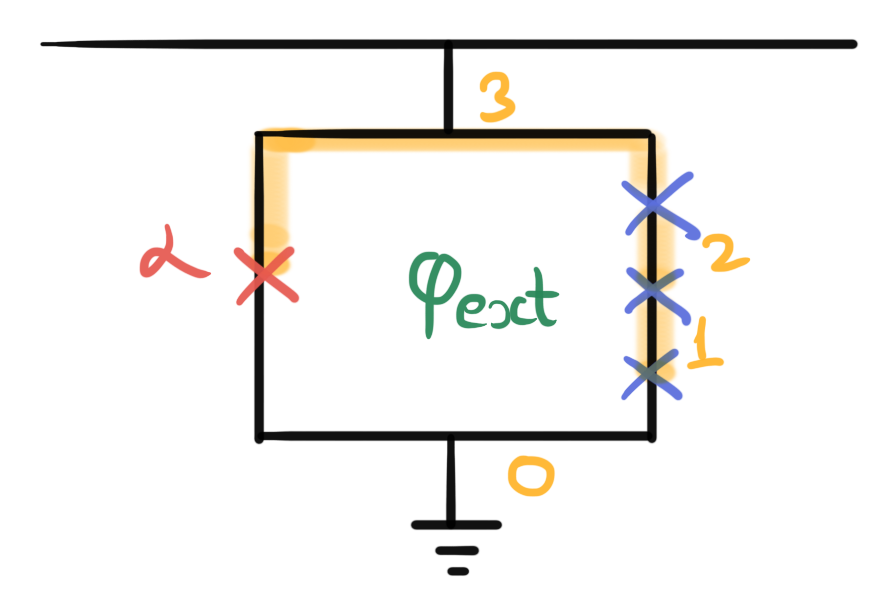 3
α
φext
2
1
0